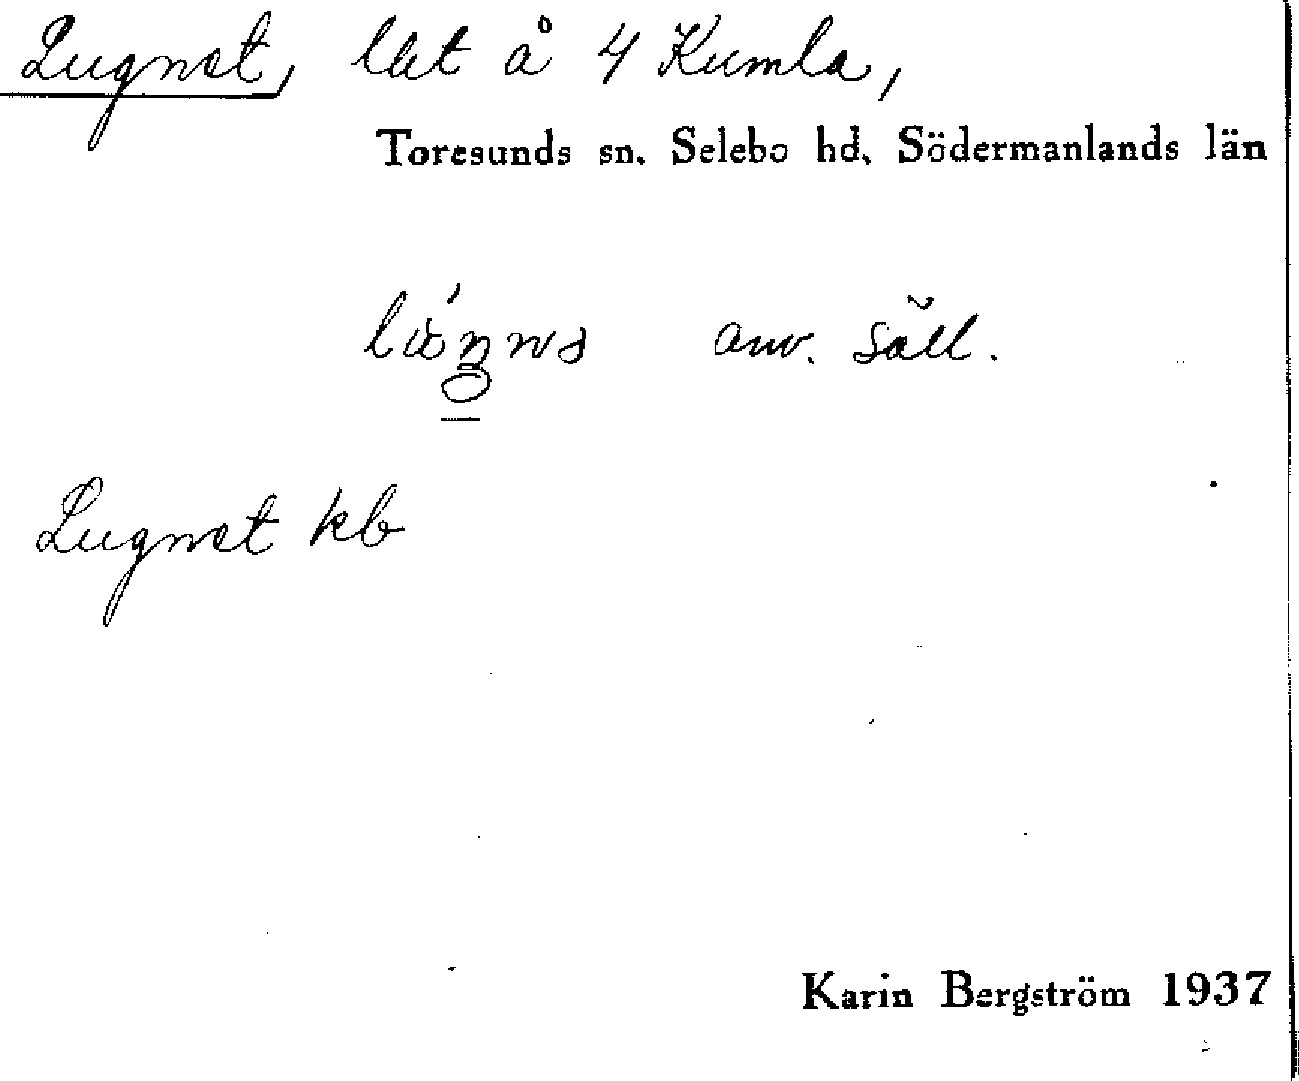 Lugnet, lht å 4 Kumla,
Toresunds sn. Selebo hd. Södermanlands län
anv. säll.
Lugnet kb
Karin Bergström 1937